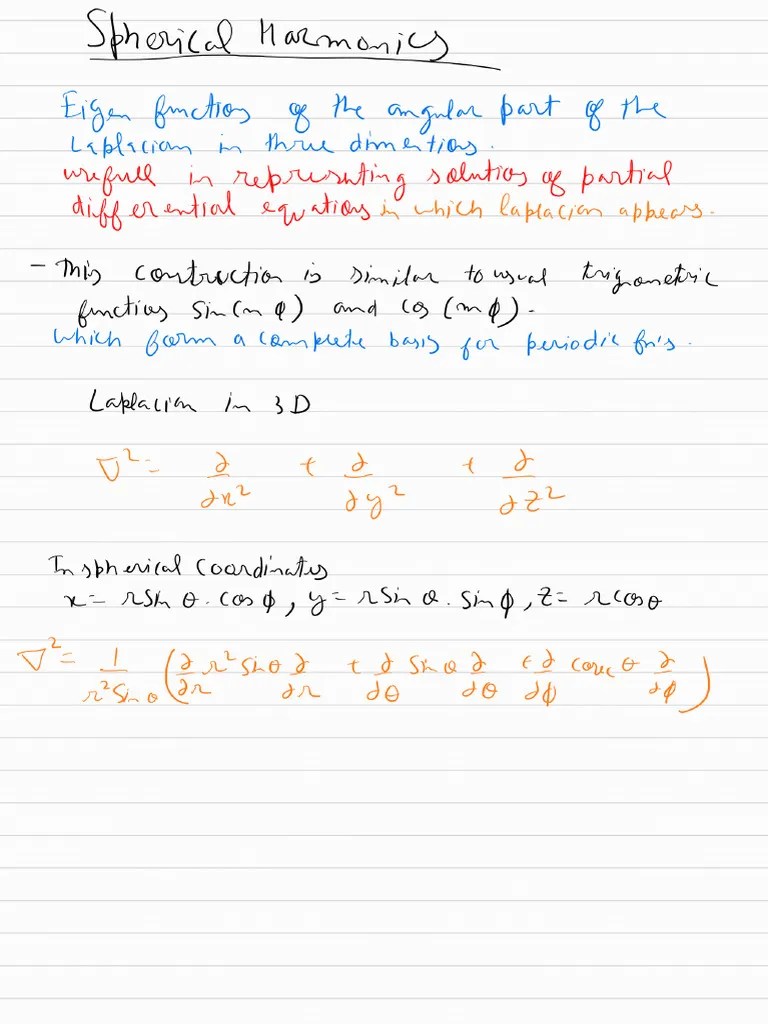 Spherical Harmonics
Eigen functions of the angular part of the
Laplacian in three dimentions.
usefull in representing solutions of partial
differential equations in which laplacian appears.
- This construction is similar to usual trigonometric
functions Sin(mϕ) and Cos(mϕ).
which form a complete basis for periodic fn's.
Laplacian in 3D
∇² = ∂/∂x² + ∂/∂y² + ∂/∂z²
In spherical coordinates
x = r Sin θ . cos ϕ, y = r Sin θ . Sin ϕ, z = r cos θ
∇² = 1/(r² Sin θ) (∂/∂r r² Sin θ ∂/∂r + ∂/∂θ Sin θ ∂/∂θ + ∂/∂ϕ cosec θ ∂/∂ϕ)